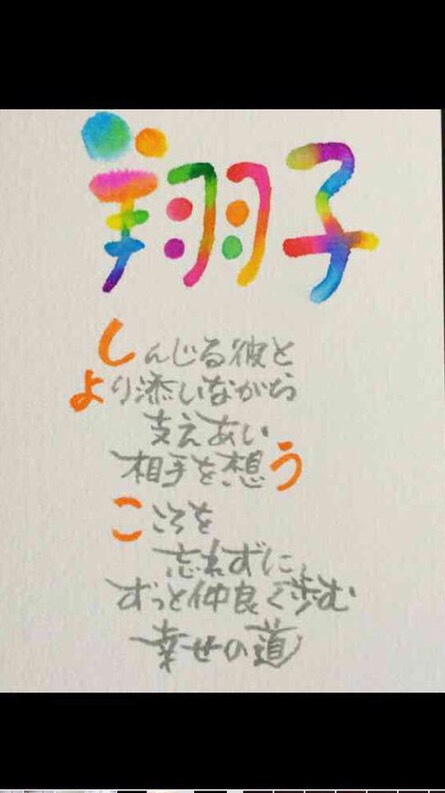 翔子
しんじる彼と
より添いながら
支えあい
相手を想う
こころを
忘れずに、
ずっと仲良く歩む
幸せの道